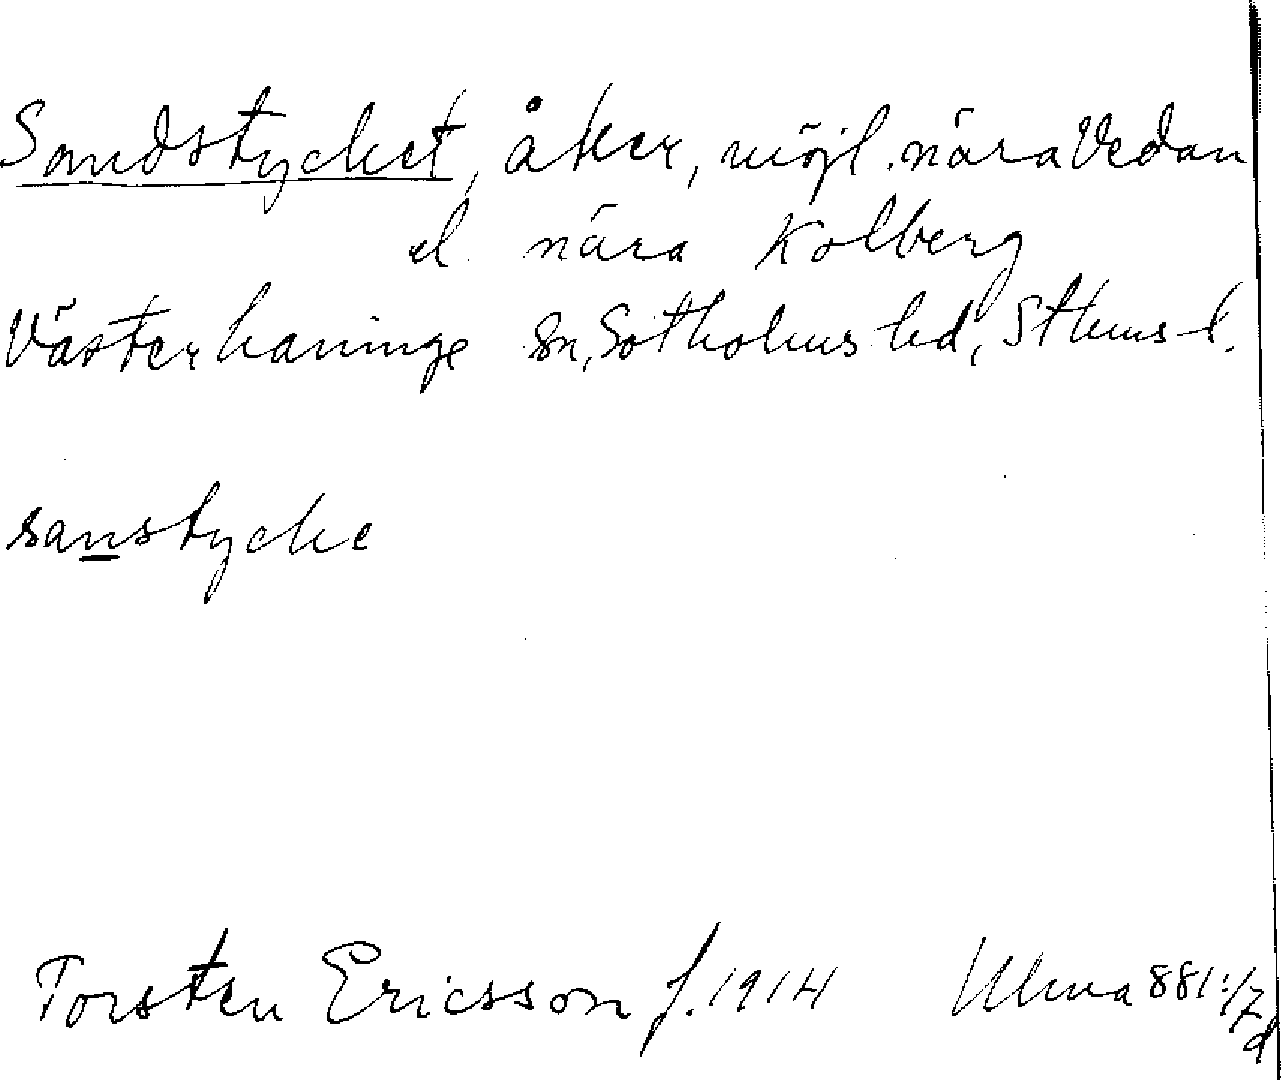 Sandstycket, åker, möjl. nära Vedan
el. nära Kolberg
Västerhaninge sn, Sotholms hd, Sthms l.
sanstycke
Torsten Ericsson f. 1914 Ulma 881:/7
d